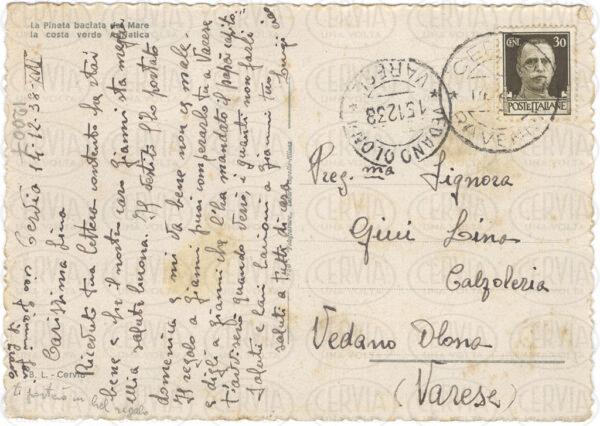 La Pineta baciata dal Mare
la costa verde Adriatica
Cervia 14-12-38-XVII
Carissima Lina
Ricevuto tua lettera contento che stai
bene e che il nostro caro Gianni sta meglio
mia salute buona. Il vestito l'ho portato
domenica e mi va bene non è male
Il regalo a Gianni puoi comperarlo tu a Varese
e digli a Gianni che l'ha mandato il papà
t'avviserò quando verrò, e guanti non farli
Saluti e cari bacioni a Gianni tuo
saluti a tutti di casa Luigi
ti porterò un bel regalo
B. L. - Cervia
12007
CENT. 30
POSTE ITALIANE
VEDANO OLONA
* VARESE *
15.12.38
CERVIA
RAVENNA
Preg.ma Signora
Giui Lina
Calzoleria
Vedano Olona
(Varese)
CERVIA
UNA VOLTA